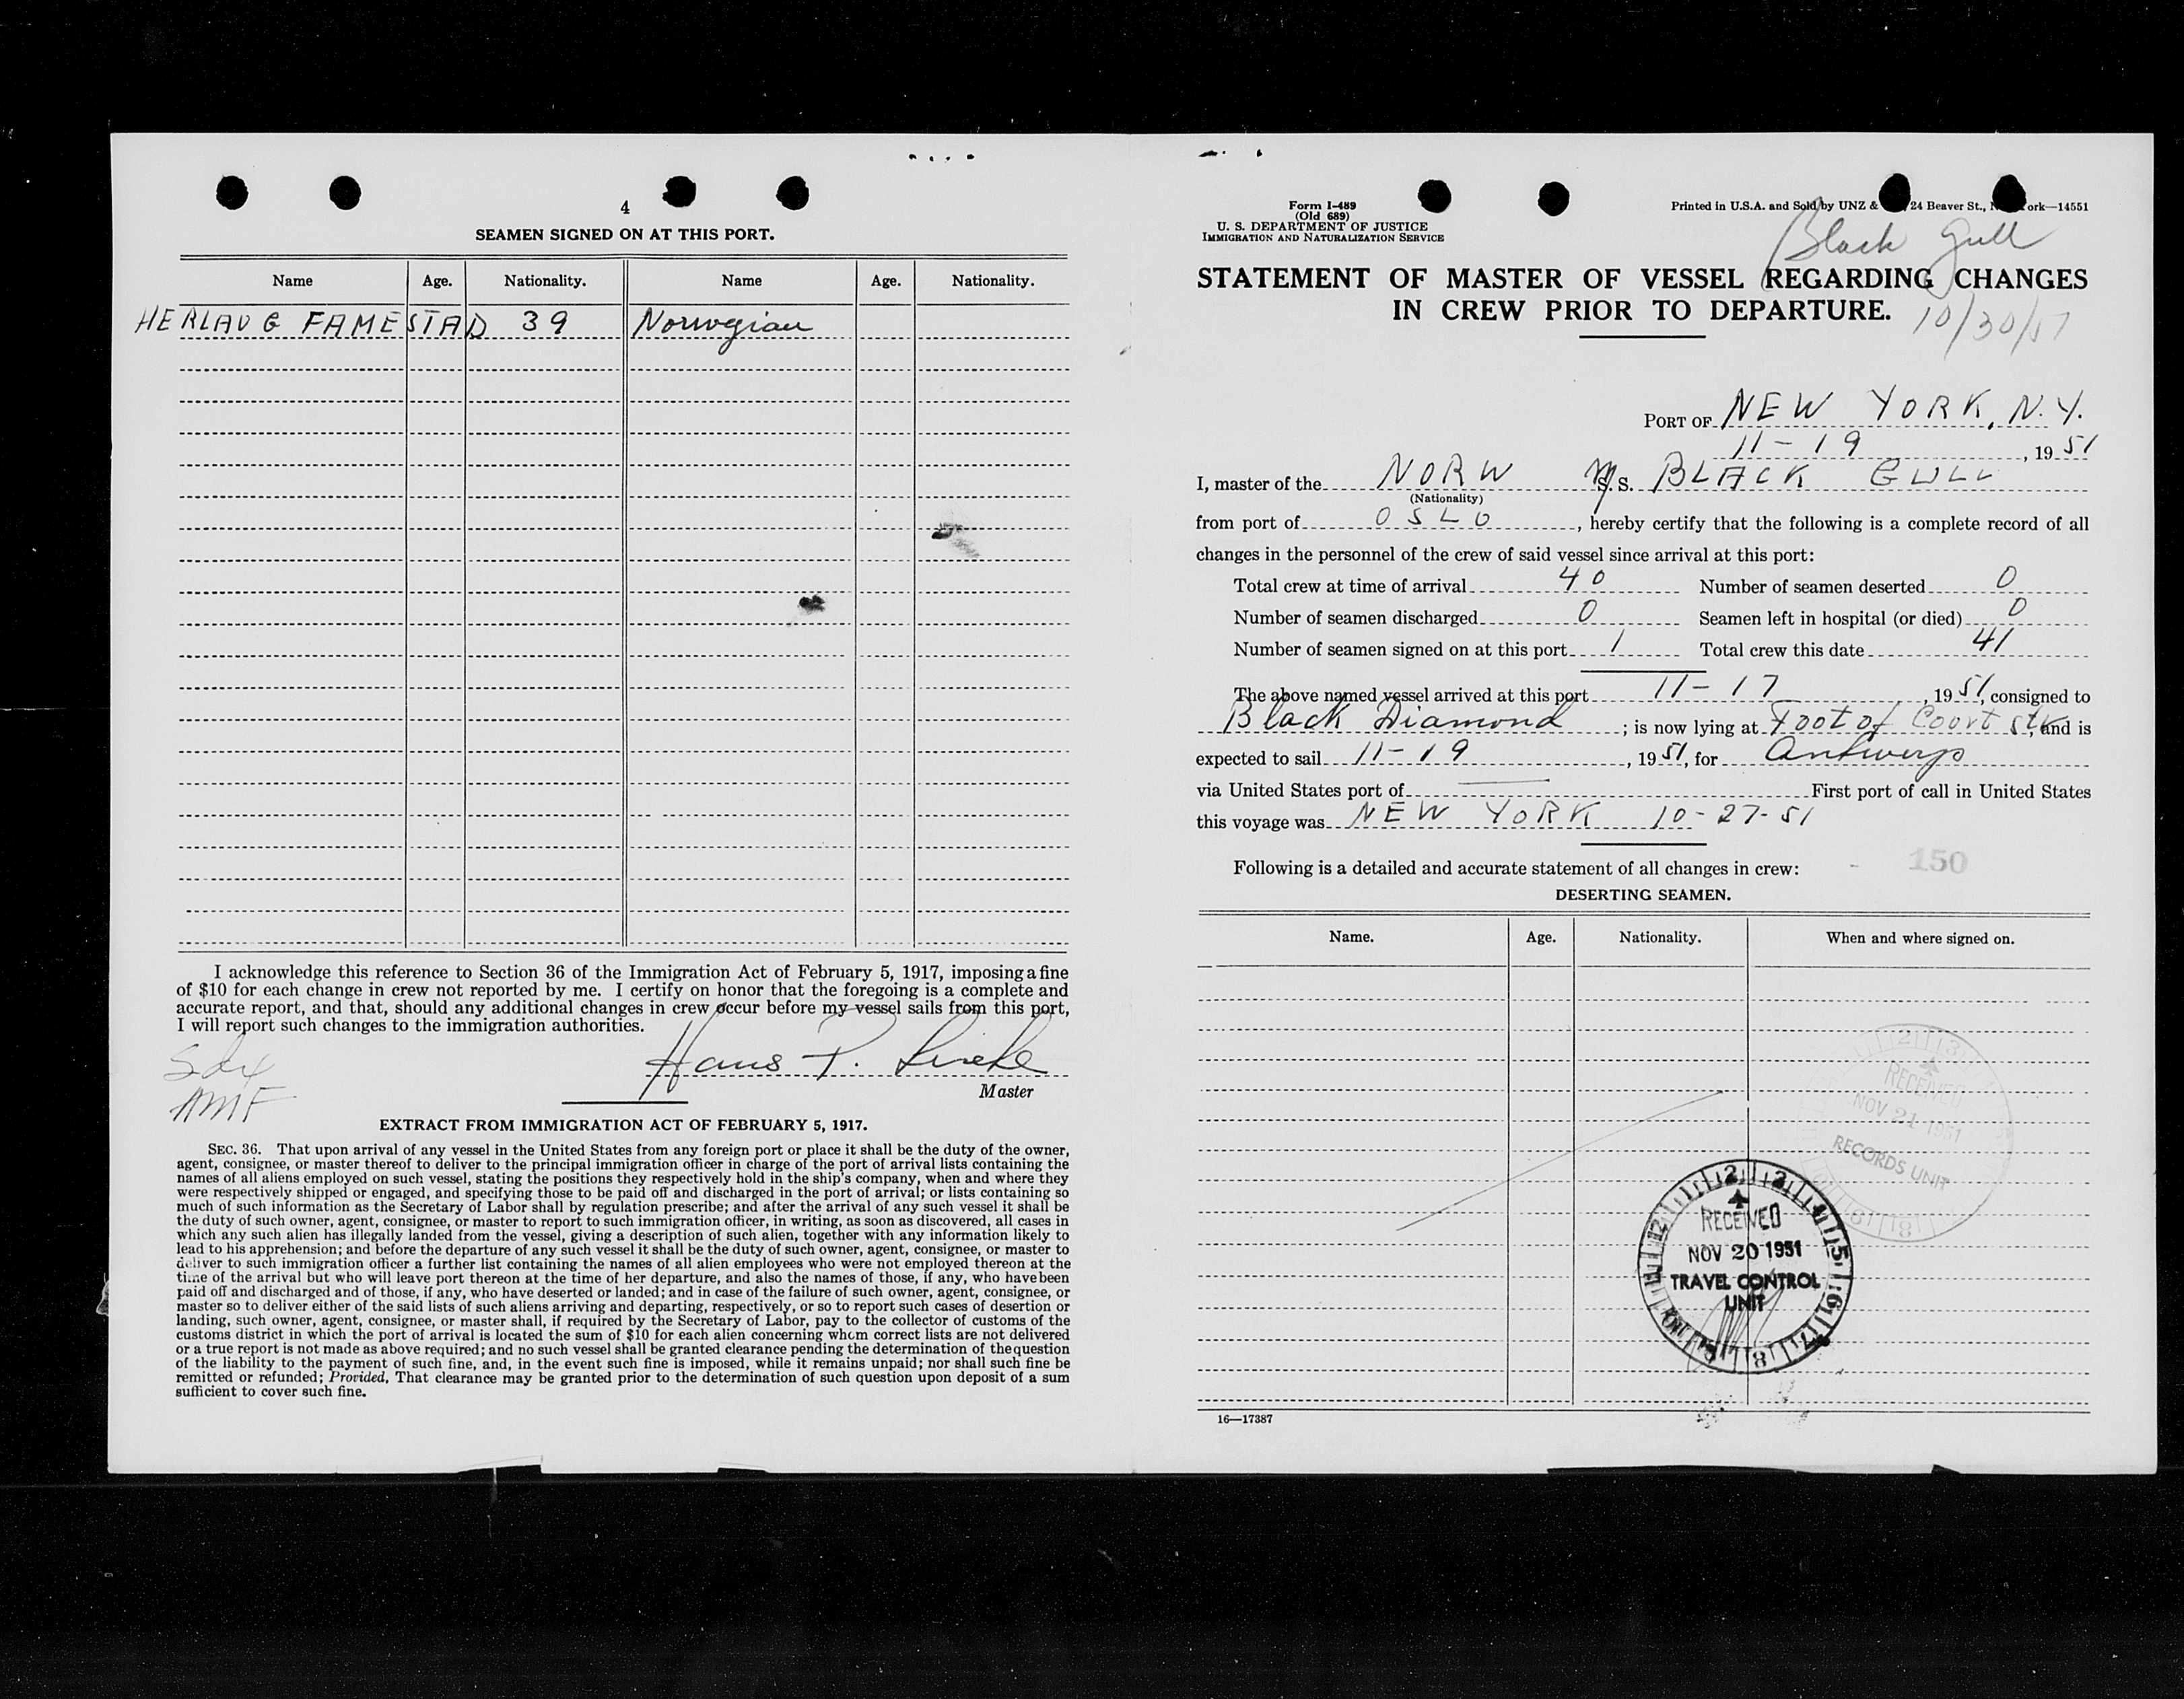 4
SEAMEN SIGNED ON AT THIS PORT.
Name Age. Nationality. Name Age. Nationality.
HERLAUG FAMESTAD 39 Norwegian
I acknowledge this reference to Section 36 of the Immigration Act of February 5, 1917, imposing a fine
of $10 for each change in crew not reported by me. I certify on honor that the foregoing is a complete and
accurate report, and that, should any additional changes in crew occur before my vessel sails from this port,
I will report such changes to the immigration authorities.
Hans P.
Master
AMF
EXTRACT FROM IMMIGRATION ACT OF FEBRUARY 5, 1917.
SEC. 36. That upon arrival of any vessel in the United States from any foreign port or place it shall be the duty of the owner,
agent, consignee, or master thereof to deliver to the principal immigration officer in charge of the port of arrival lists containing the
names of all aliens employed on such vessel, stating the positions they respectively hold in the ship's company, when and where they
were respectively shipped or engaged, and specifying those to be paid off and discharged in the port of arrival; or lists containing so
much of such information as the Secretary of Labor shall by regulation prescribe; and after the arrival of any such vessel it shall be
the duty of such owner, agent, consignee, or master to report to such immigration officer, in writing, as soon as discovered, all cases in
which any such alien has illegally landed from the vessel, giving a description of such alien, together with any information likely to
lead to his apprehension; and before the departure of any such vessel it shall be the duty of such owner, agent, consignee, or master to
deliver to such immigration officer a further list containing the names of all alien employees who were not employed thereon at the
time of the arrival but who will leave port thereon at the time of her departure, and also the names of those, if any, who have been
paid off and discharged and of those, if any, who have deserted or landed; and in case of the failure of such owner, agent, consignee, or
master so to deliver either of the said lists of such aliens arriving and departing, respectively, or so to report such cases of desertion or
landing, such owner, agent, consignee, or master shall, if required by the Secretary of Labor, pay to the collector of customs of the
customs district in which the port of arrival is located the sum of $10 for each alien concerning whom correct lists are not delivered
or a true report is not made as above required; and no such vessel shall be granted clearance pending the determination of the question
of the liability to the payment of such fine, and, in the event such fine is imposed, while it remains unpaid; nor shall such fine be
remitted or refunded; Provided, That clearance may be granted prior to the determination of such question upon deposit of a sum
sufficient to cover such fine.
Form I-489
(Old 689)
U. S. DEPARTMENT OF JUSTICE
IMMIGRATION AND NATURALIZATION SERVICE
Printed in U.S.A. and Sold by UNZ & 24 Beaver St., ork—14551
Black Gull
STATEMENT OF MASTER OF VESSEL REGARDING CHANGES
IN CREW PRIOR TO DEPARTURE.
10/30/51
PORT OF NEW YORK, N.Y.
11-19, 1951
I, master of the NORW M/S. S. BLACK GULL
(Nationality)
from port of OSLO, hereby certify that the following is a complete record of all
changes in the personnel of the crew of said vessel since arrival at this port:
Total crew at time of arrival 40 Number of seamen deserted 0
Number of seamen discharged 0 Seamen left in hospital (or died) 0
Number of seamen signed on at this port 1 Total crew this date 41
The above named vessel arrived at this port 11-17, 1951, consigned to
Black Diamond; is now lying at Foot of Court St, and is
expected to sail 11-19, 1951, for Antwerp
via United States port of — First port of call in United States
this voyage was NEW YORK 10-27-51
Following is a detailed and accurate statement of all changes in crew: - 150
DESERTING SEAMEN.
Name. Age. Nationality. When and where signed on.
RECEIVED
NOV 21 1951
RECORDS UNIT
RECEIVED
NOV 20 1951
TRAVEL CONTROL
UNIT
16—17387